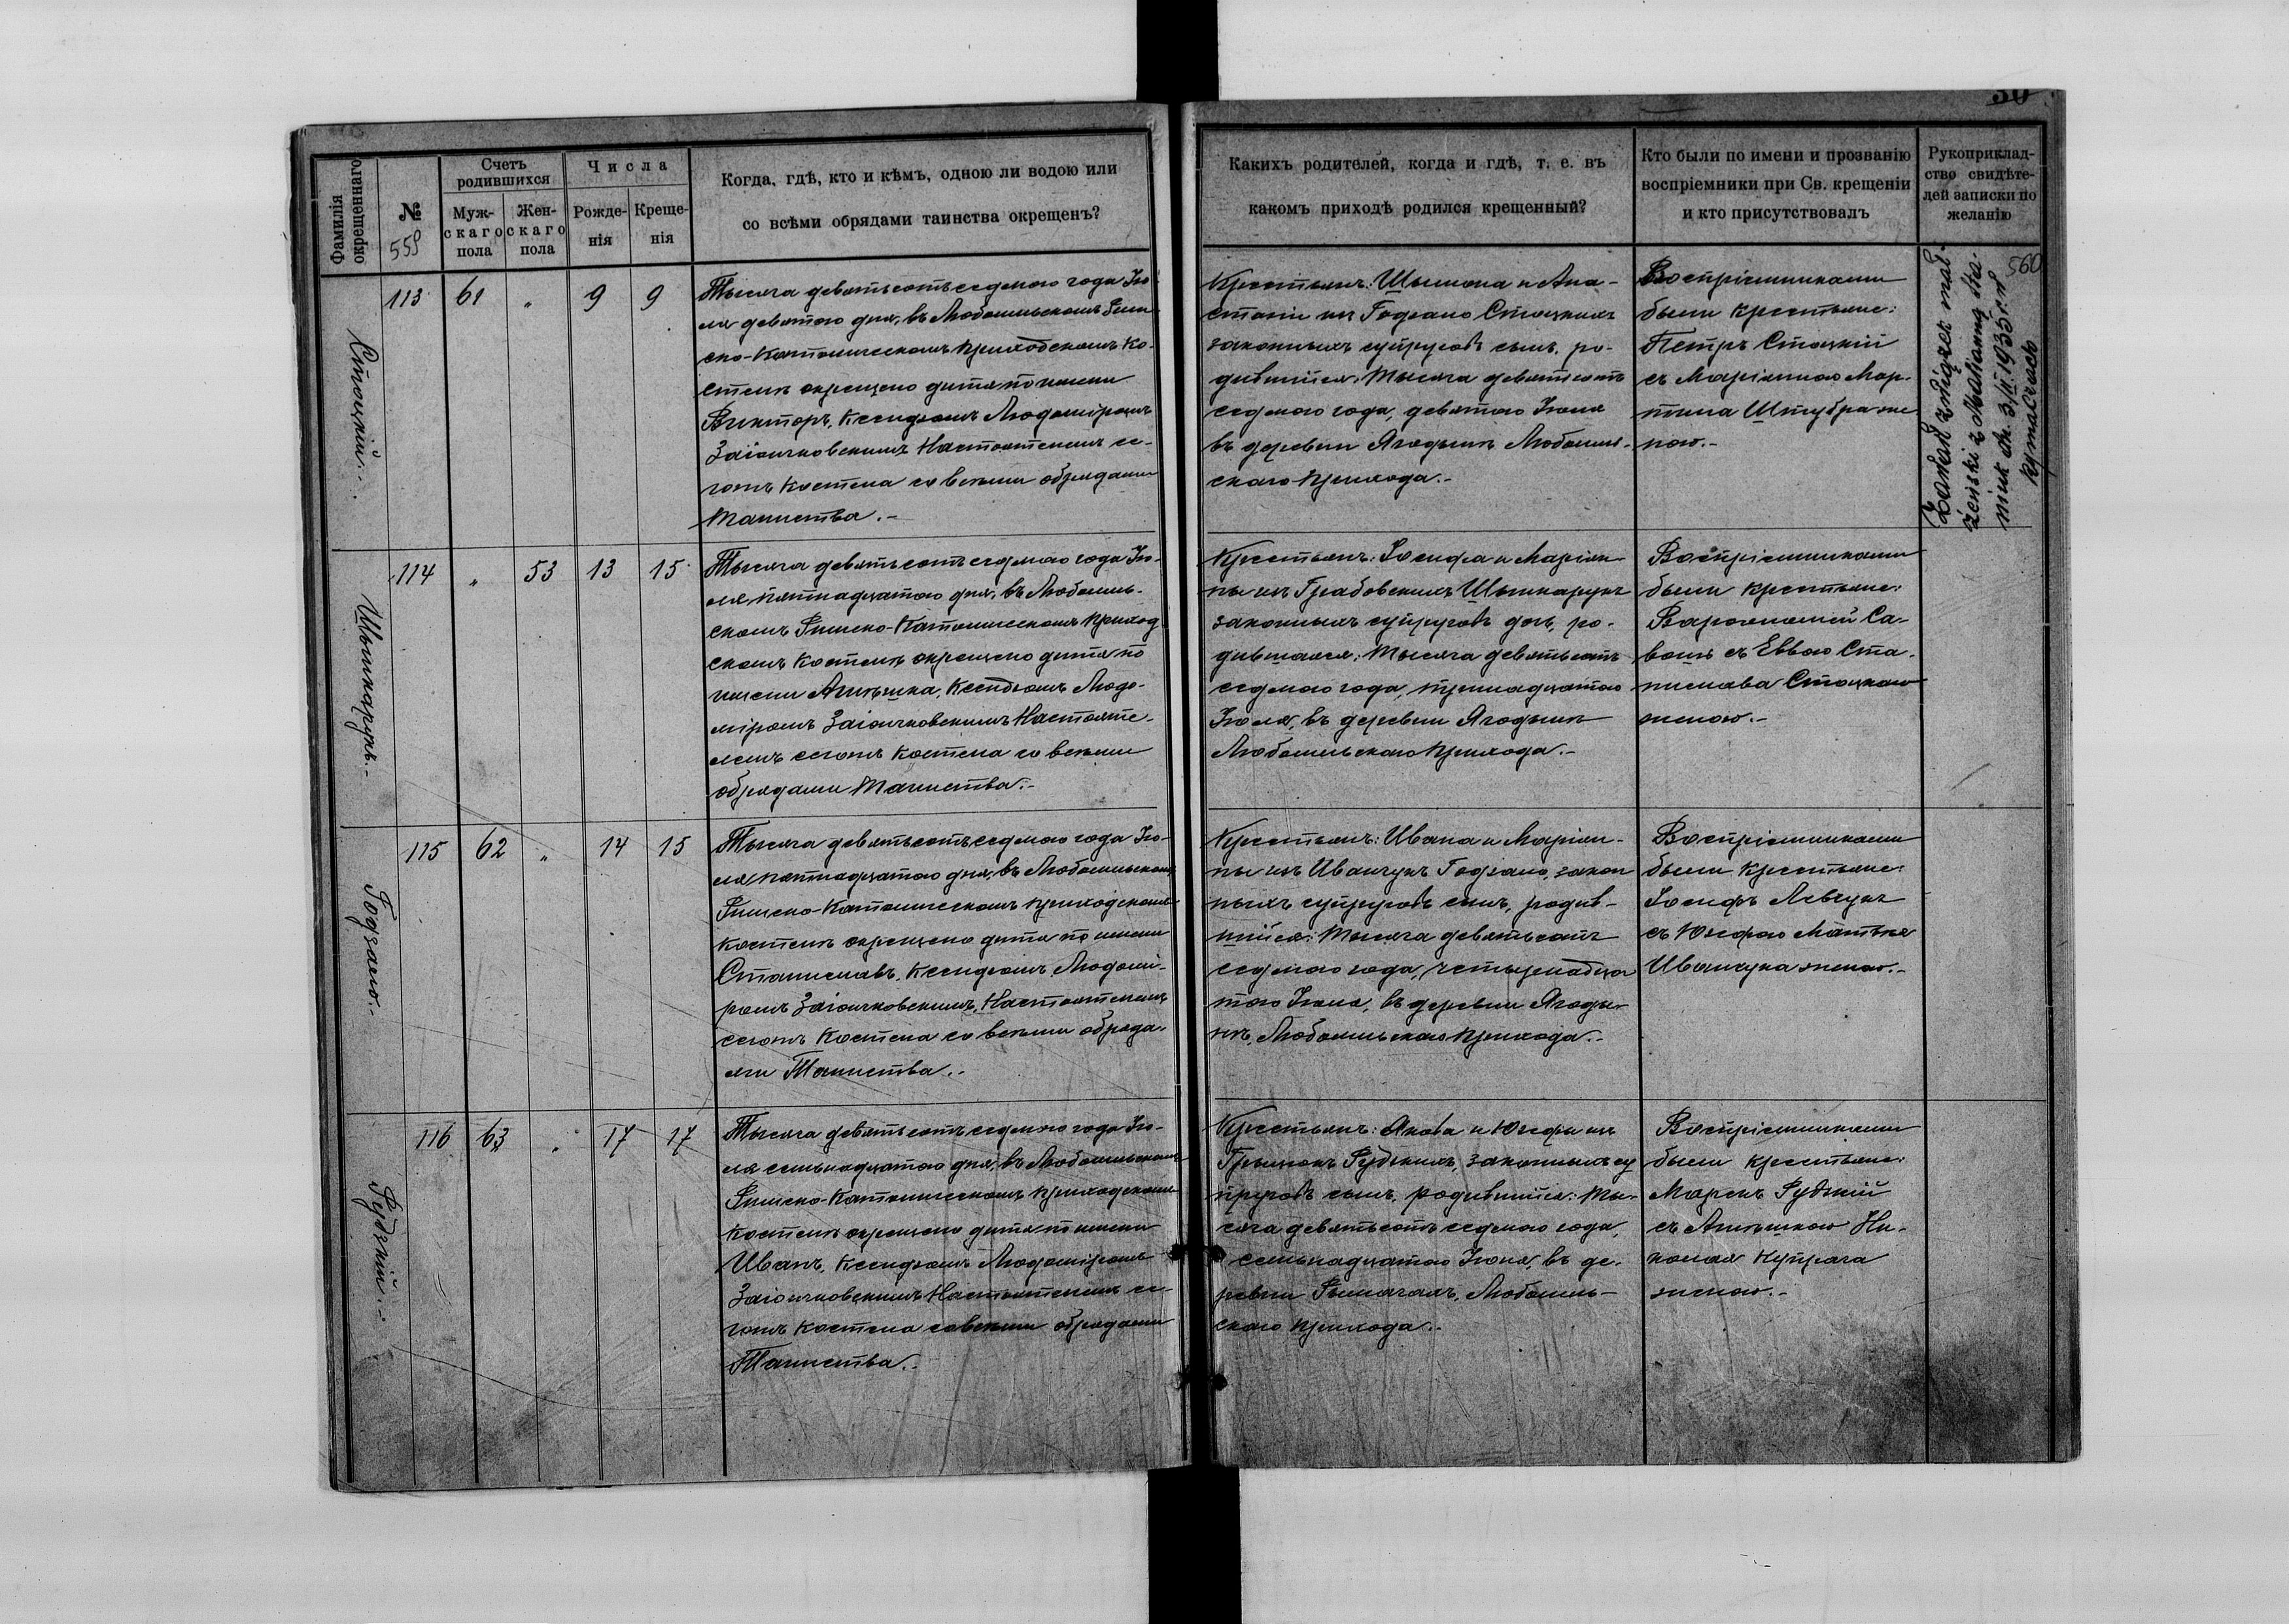 30
Фамилія окрещеннаго
№
559
Счетъ родившихся
Муж-
скаго
пола
Жен-
скаго
пола
Числа
Рожде-
нія
Креще-
нія
Когда, гдѣ, кто и кѣмъ, одною ли водою или
со всѣми обрядами таинства окрещенъ?
Какихъ родителей, когда и гдѣ, т. е. въ
какомъ приходѣ родился крещенный?
Кто были по имени и прозванію
воспріемники при Св. крещеніи
и кто присутствовалъ
Рукоприклад-
ство свидѣте-
лей записки по
желанію
560
Стоцкій.
113 61 „ 9 9
Тысяча девятьсотъ седьмого года Iю-
ля девятаго дня, въ Любомльскомъ Рим-
ско-Католическомъ приходскомъ Ко-
стелѣ окрещено дитя по имени
Викторъ, Ксендзомъ Людоміромъ
Заіончковскимъ Настоятелемъ се-
гожъ Костела со всѣми обрядами
Таинства.-
Крестьянъ: Шымона и Ана-
стазіи изъ Годзано Стоцкихъ
законныхъ супруговъ сынъ, ро-
дившійся: тысяча девятьсотъ
седьмого года, девятаго Iюля
въ деревни Ягодынѣ Любомль-
скаго прихода.-
Воспріемниками
были крестьяне:
Петръ Стоцкій
съ Маріянною Мар-
тина Штубра же-
ною.-
Zawarł związek mał-
żeński z Malianną Sta-
niuk dn. 3/II 1935 r. w
Rymaczach
Шинкарукъ.-
114 „ 53 13 15
Тысяча девятьсотъ седьмого года Iю-
ля, пятнадцатаго дня, въ Любомль-
скомъ Римско-Католическомъ приход-
скомъ Костелѣ окрещено дитя по
имени Агнѣшка, Ксендзомъ Людо-
міромъ Заіончковскимъ Настояте-
лемъ сегожъ Костела со всѣми
обрядами Таинства.-
Крестьянъ: Iосифа и Маріян-
ны изъ Грабовскихъ Шынкарукъ
законныхъ супруговъ дочь, ро-
дившаяся: тысяча девятьсотъ
седьмого года, тринадцатаго
Iюля, въ деревни Ягодынѣ
Любомльскаго прихода.-
Воспріемниками
были крестьяне:
Варѳоломей Са-
вошъ съ Еввою Ста-
нислава Стоцкаго
женою.-
Годзано.
115 62 „ 14 15
Тысяча девятьсотъ седьмого года Iю-
ля, пятнадцатаго дня, въ Любомльскомъ
Римско-Католическомъ приходскомъ
Костелѣ окрещено дитя по имени
Станиславъ, Ксендзомъ Людомі-
ромъ Заіончковскимъ, Настоятелемъ
сегожъ Костела со всѣми обряда-
ми Таинства.-
Крестьянъ: Ивана и Маріян-
ны изъ Иванчукъ Годзано, закон-
ныхъ супруговъ сынъ, родив-
шійся: тысяча девятьсотъ
седьмого года, четырнадца-
таго Iюля, въ деревни Ягоды-
нѣ, Любомльскаго прихода.-
Воспріемниками
были крестьяне:
Iосифъ Левчукъ
съ Юзефою Матѣя
Иванчука женою.-
Рудзкій.-
116 63 „ 17 17
Тысяча девятьсотъ седьмого года Iю-
ля семьнадцатаго дня, въ Любомльскомъ
Римско-Католическомъ приходскомъ
Костелѣ окрещено дитя по имени
Иванъ, Ксендзомъ Людоміромъ
Заіончковскимъ Настоятелемъ се-
гожъ Костела со всѣми обрядами
Таинства.-
Крестьянъ: Якова и Юзефы изъ
Грыцюкъ Рудзкихъ, законныхъ су-
пруговъ сынъ, родившійся: ты-
сяча девятьсотъ седьмого года,
семьнадцатаго Iюля, въ де-
ревни Рымачахъ, Любомль-
скаго прихода.-
Воспріемниками
были крестьяне:
Марекъ Рудзкій
съ Агнѣшкою Ни-
колая Купрача
женою.-